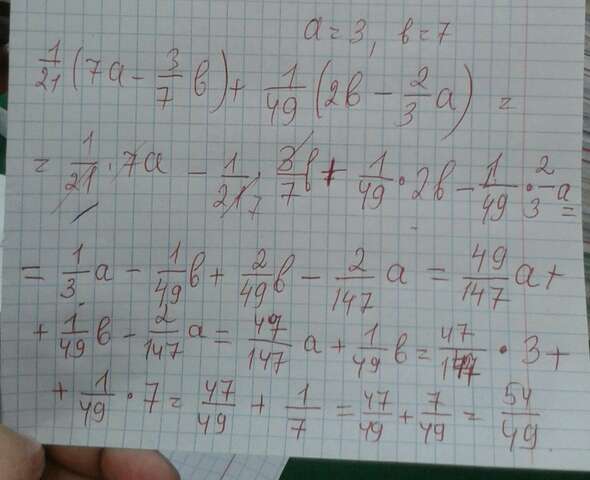 a = 3, b = 7
1/21 (7a - 3/7 b) + 1/49 (2b - 2/3 a) =
= 1/21 · 7a - 1/21 · 3/7 b + 1/49 · 2b - 1/49 · 2/3 a =
= 1/3 a - 1/49 b + 2/49 b - 2/147 a = 49/147 a +
+ 1/49 b - 2/147 a = 47/147 a + 1/49 b = 47/147 · 3 +
+ 1/49 · 7 = 47/49 + 1/7 = 47/49 + 7/49 = 54/49